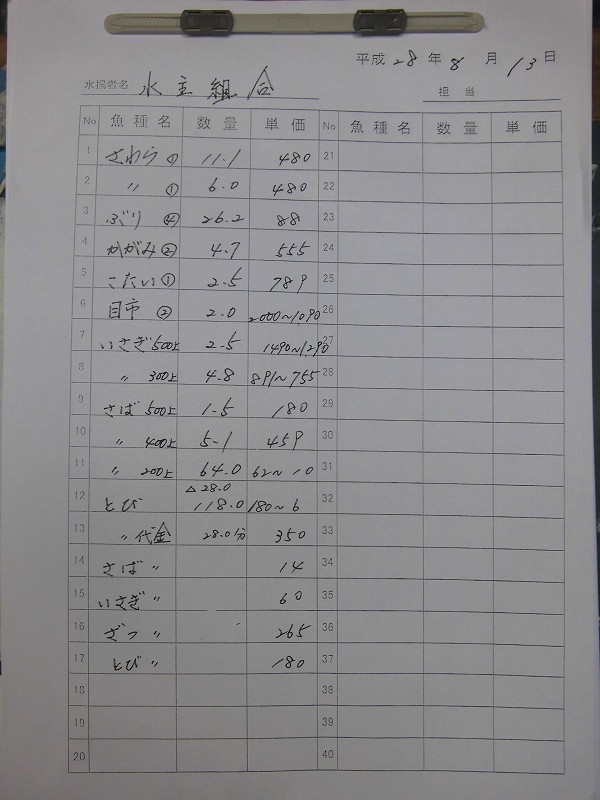 平成 28 年 8 月 13 日
水揚者名 水主組合
担 当
No 魚種名 数量 単価 No 魚種名 数量 単価
1 さわら ① 11.1 480 21
2 〃 ① 6.0 480 22
3 ぶり ④ 26.2 88 23
4 かがみ ② 4.7 555 24
5 こたい ① 2.5 789 25
6 目市 ② 2.0 2000~1090 26
7 いさぎ 500上 2.5 1490~1290 27
8 〃 300上 4.8 891~755 28
9 さば 500上 1.5 180 29
10 〃 400上 5.1 459 30
11 〃 200上 64.0 62~10 31
△28.0
12 とび 118.0 180~6 32
13 〃 代金 28.0分 350 33
14 さば 〃 14 34
15 いさぎ 〃 60 35
16 ざつ 〃 265 36
17 とび 〃 180 37
18 38
19 39
20 40